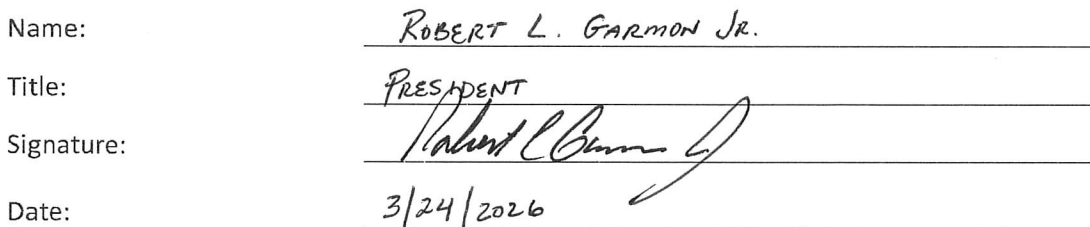 Name: ROBERT L. GARMON JR.
Title: PRESIDENT
Signature: Robert L Garmon Jr
Date: 3/24/2026